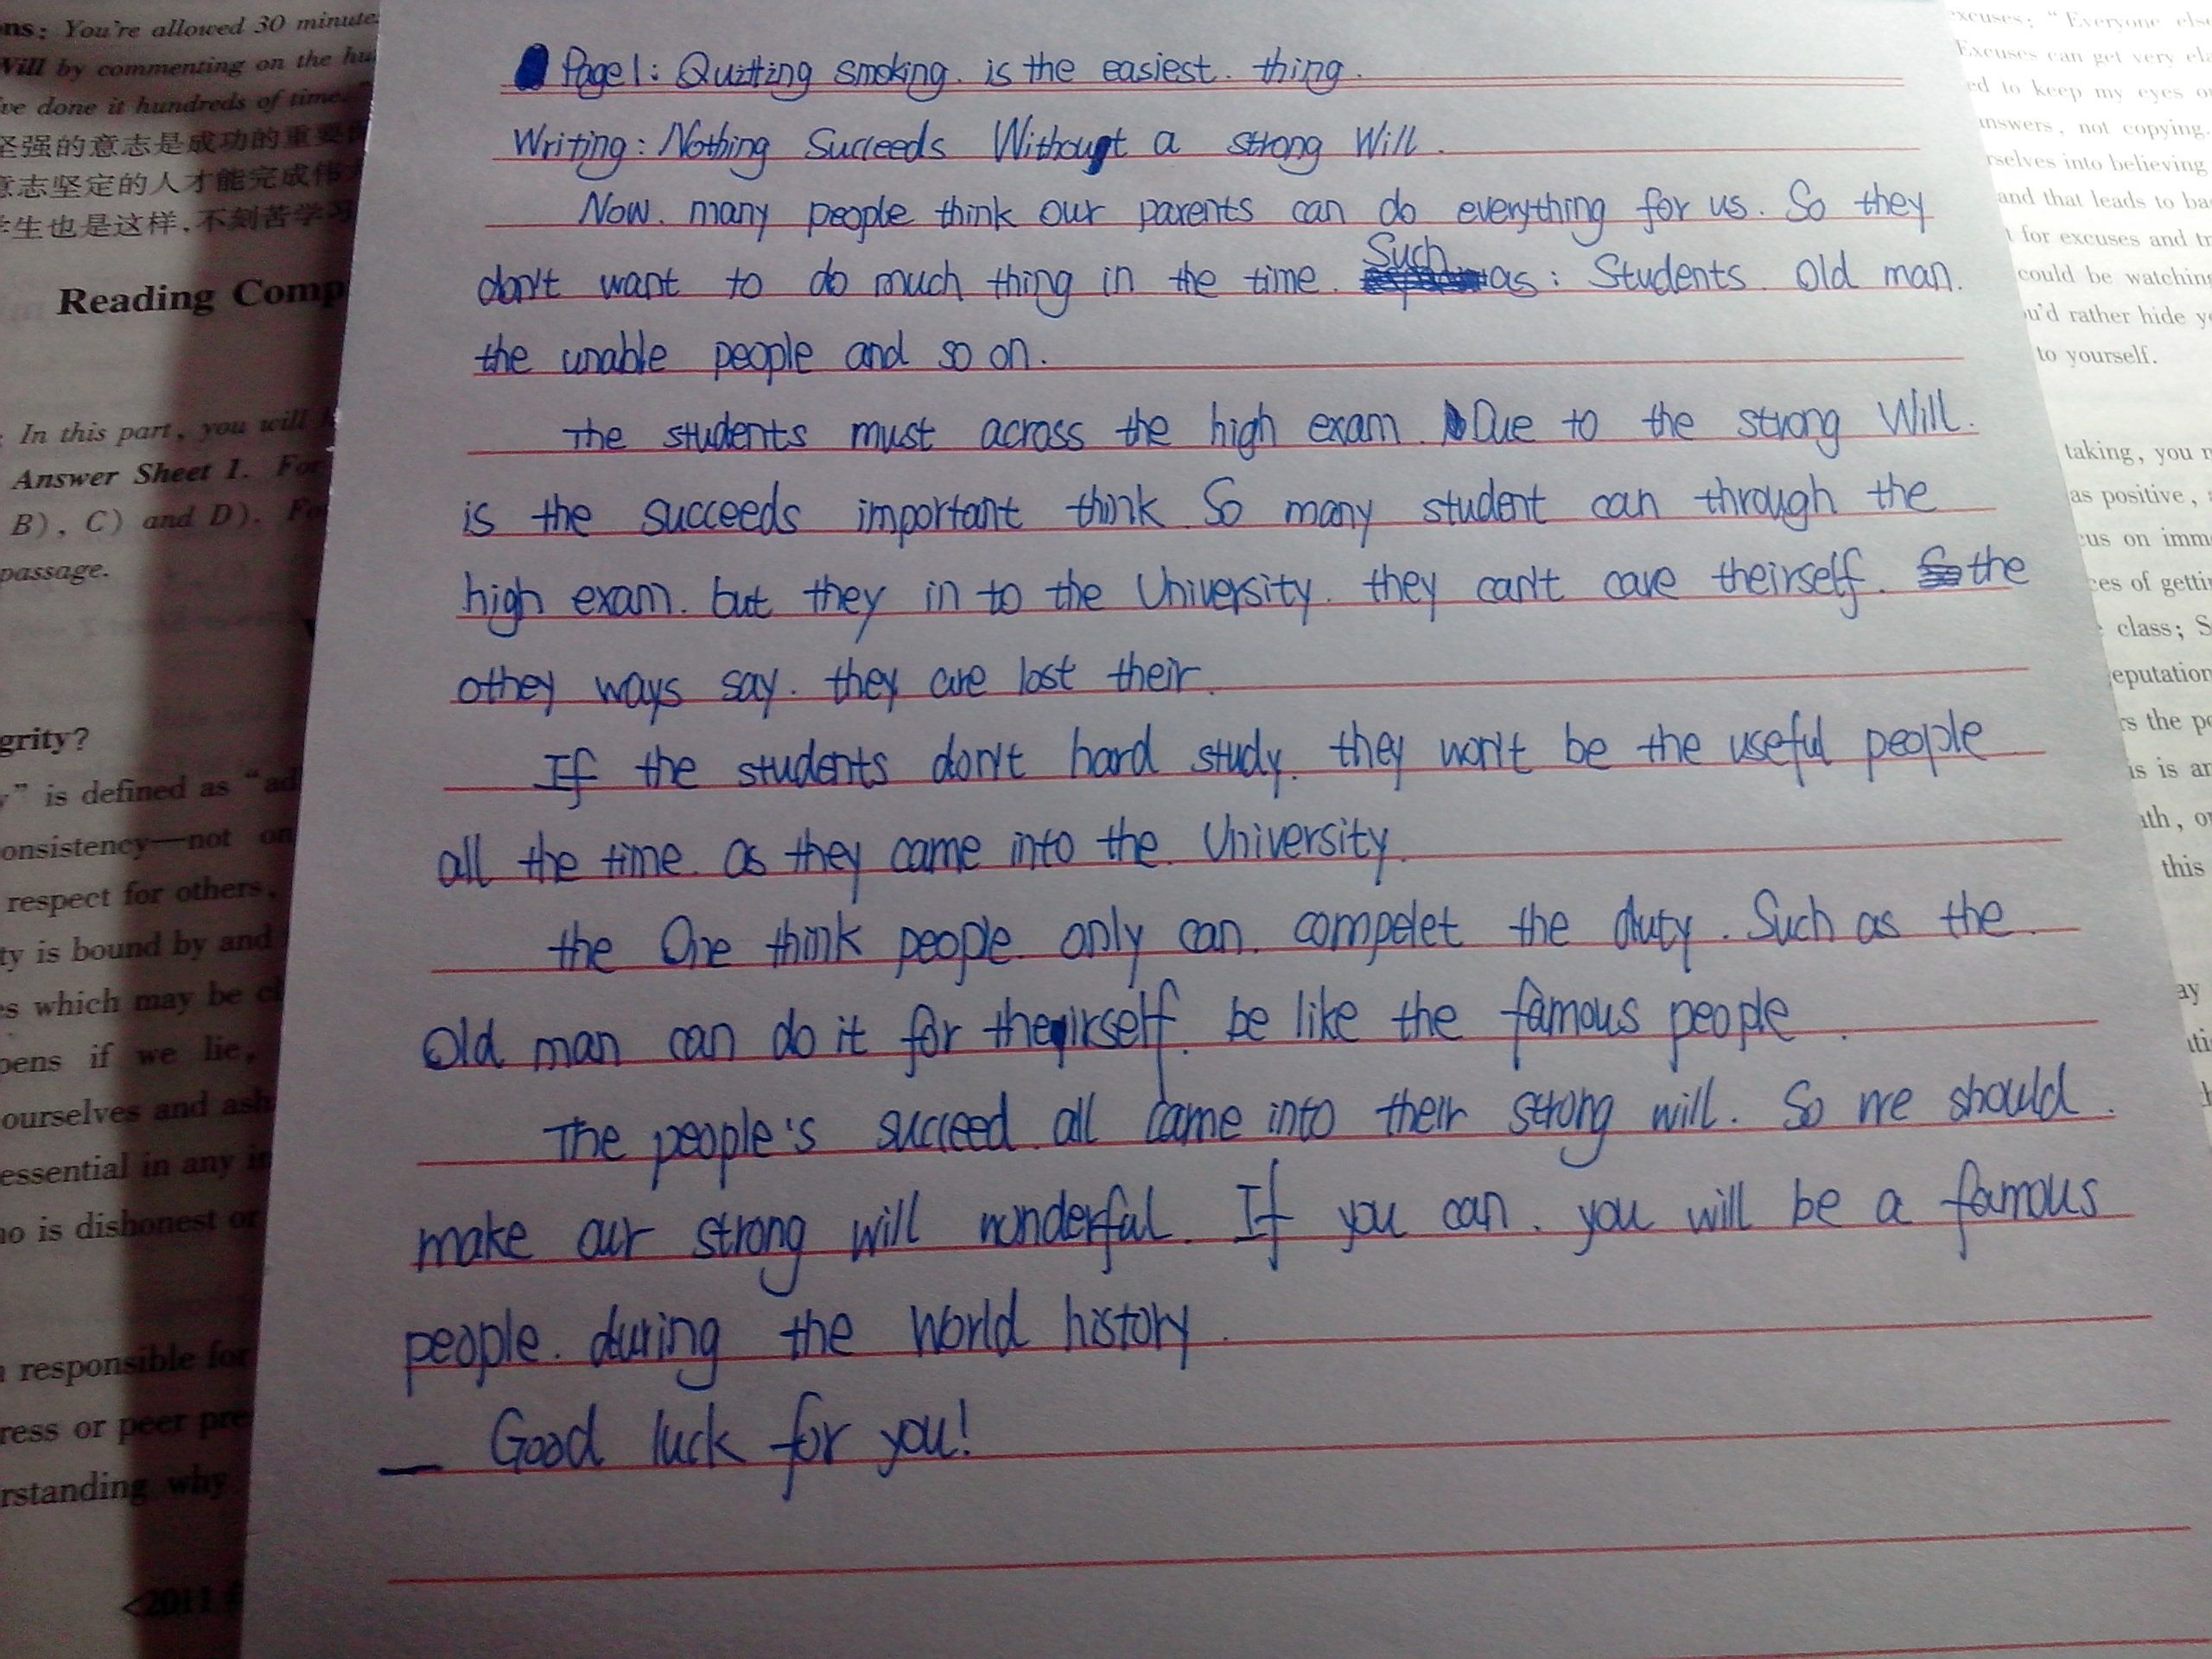 ns: You're allowed 30 minute
Will by commenting on the hu
've done it hundreds of time."
坚强的意志是成功的重要
意志坚定的人才能完成伟
学生也是这样,不刻苦学习
Reading Comp
: In this part, you will
Answer Sheet 1. For
B), C) and D). Fo
passage.
grity?
y" is defined as "ad
onsistency—not on
respect for others,
ty is bound by and
s which may be
pens if we lie,
ourselves and ash
essential in any
no is dishonest or
responsible for
ress or peer pre
rstanding why
<2011
Page1: Quitting smoking. is the easiest. thing.
Writing: Nothing Succeeds Without a strong Will.
Now. many people think our parents can do everything for us. So they
don't want to do much thing in the time. Such as: Students. Old man.
the unable people and so on.
The students must across the high exam. Due to the strong Will.
is the succeeds important think. So many student can through the
high exam. but they in to the University. they can't care theirself. the
othey ways say. they are lost their.
If the students don't hard study. they won't be the useful people
all the time. as they came into the. University.
the One think people. only can. compelet the duty. Such as the.
Old man can do it for theirself. be like the famous people.
The people's succeed. all came into their strong will. So we should.
make our strong will wonderful. If you can. you will be a famous
people. during the World history.
Good luck for you!
excuses: "Everyone else
Excuses can get very ela
ed to keep my eyes o
answers, not copying.
rselves into believing
and that leads to ba
t for excuses and tr
could be watching
u'd rather hide y
to yourself.
taking, you
as positive,
us on imm
ces of getti
class; S
eputation
rs the p
is is a
ath, o
this